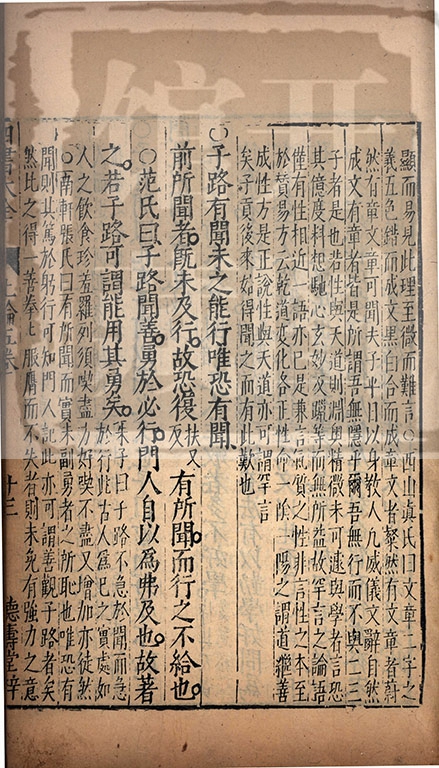 顯而易見此理至微而難言○西山真氏曰文章二字之
義五色錯而成文黑白合而成章文者粲然有文章者蔚
然有章文章可聞夫子平日以身教人凡威儀文辭自然
成文有章者皆是所謂吾無隱乎爾吾無行而不與二三
子者是也若性與天道則淵奧精微未可遽與學者言恐
其億度料想馳心玄妙反躐等而無所益故罕言之論語
僅有性相近一語亦已是兼言氣質之性非言性之本至
於贊易方云乾道變化各正性命一陰一陽之謂道繼善
成性方是正說性與天道亦可謂罕言
矣子貢後來始得聞之而有此歎也
○子路有聞未之能行唯恐有聞
前所聞者既未及行故恐復扶又反有所聞而行之不給也
○范氏曰子路聞善勇於必行門人自以為弗及也故著
之若子路可謂能用其勇矣朱子曰子路不急於聞而急
於行此古人為己之實處如
人之飲食珍羞羅列須喫盡
方好喫不盡又增加亦徒然
○南軒張氏曰有所聞而實未副勇者之所恥也唯恐有
聞則其篤於躬行可知門人記此亦可謂善觀子路者矣
然比之得一善拳拳服膺而不失者則未免有強力之意
四書大全
上論五卷
十三
德壽堂梓